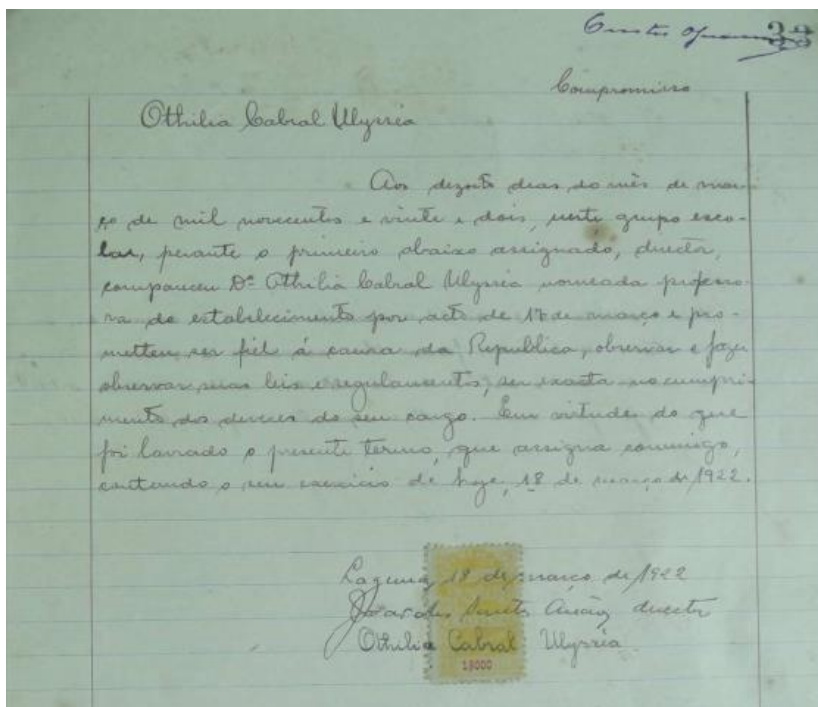 33
Compromisso
Othilia Cabral Ulysséa
Aos dezoito dias do mês de mar-
ço de mil novecentos e vinte e dois, neste grupo esco-
lar, perante o primeiro abaixo assignado, director,
compareceu Dª Othilia Cabral Ulysséa nomeada professo-
ra do estabelecimento por acto de 17 de março e pro-
metteu ser fiel á causa da Republica, observar e fazer
observar suas leis e regulamentos, ser exacta no cumpri-
mento dos deveres do seu cargo. Em virtude do que
foi lavrado o presente termo, que assigna commigo,
contando o seu exercicio de hoje, 18 de março de 1922.
Laguna, 18 de março de 1922
director
Othilia Cabral Ulysséa
1$000